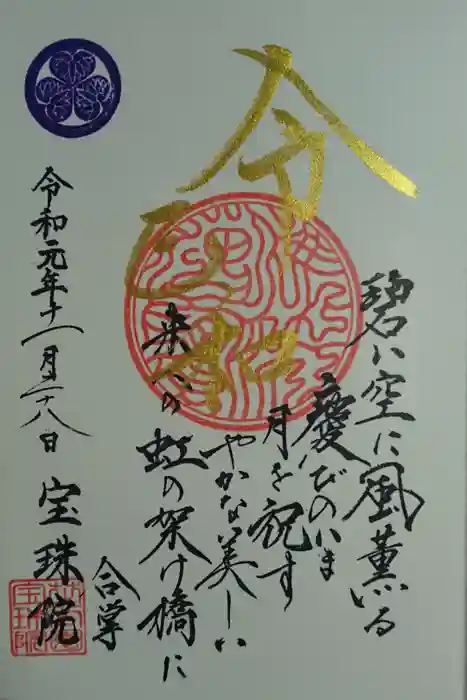 碧い空に風薫る
慶びのいま
令月を祝す
和やかな美しい
来への虹の架け橋に
令和元年十一月二十八日
宝珠院
合掌